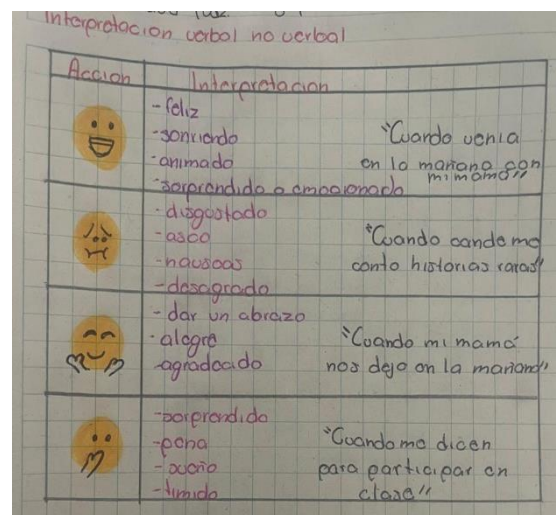 Interpretacion verbal no verbal
Accion
Interpretacion
-feliz
-sonriendo
-animado
-sorprendido o emocionado
"Cuando venia
en la mañana con
mi mamá"
-disgustado
-asco
-nauseas
-desagrado
"Cuando me
conto historias raras"
-dar un abrazo
-alegre
-agradecido
"Cuando mi mamá
nos dejo en la mañana"
-sorprendido
-pena
-sueño
-timido
"Cuando me dicen
para participar en
clase"